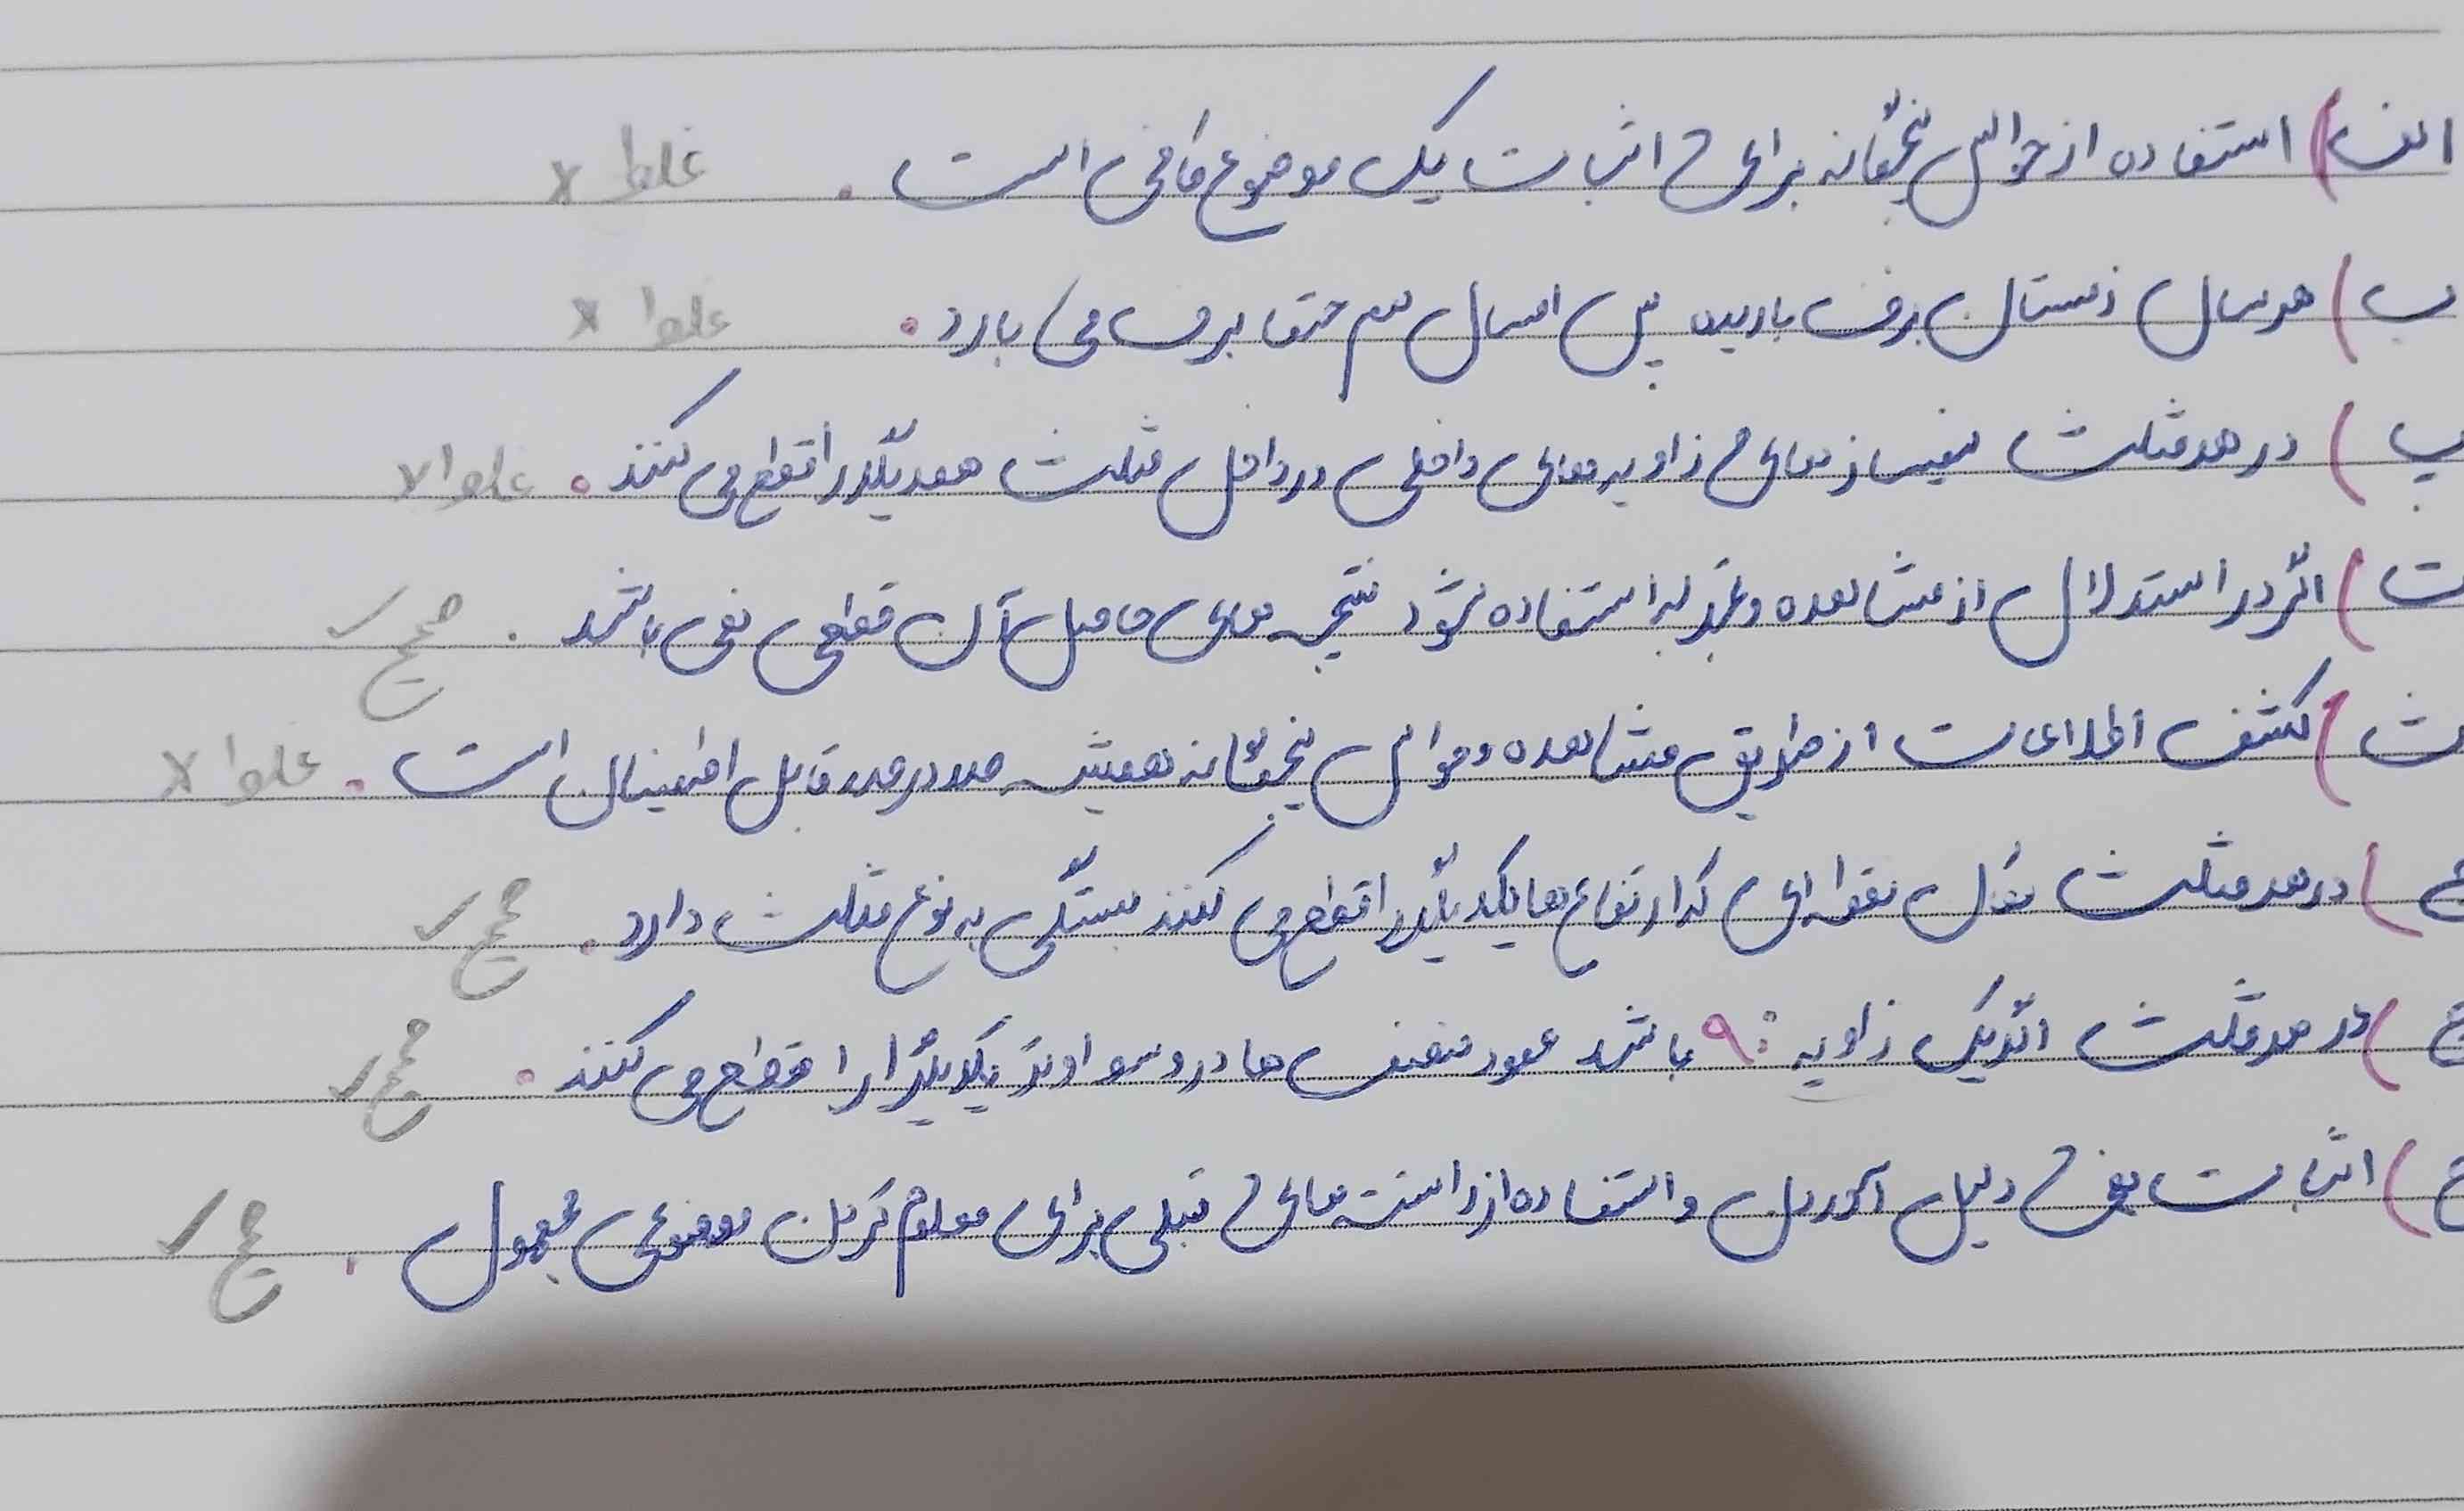 الف) استفاده از حواس پنجگانه برای اثبات یک موضوع کافی است. غلط x
ب) هر سال زمستان برف باریده پس امسال هم حتما برف می بارد. غلط x
پ) در هر مثلث نیمساز های زاویه های داخلی در داخل مثلث همدیگر را قطع می کنند. غلط x
ت) اگر در استدلال از مشاهده و تجربه استفاده شود نتیجه های حاصل آن قطعی نمی باشد. صحیح ✓
ث) کشف اطلاعات از طریق مشاهده و حواس پنجگانه همیشه صد در صد قابل اطمینان است. غلط x
ج) در هر مثلث مکان نقطه ای که ارتفاع ها یکدیگر را قطع می کنند بستگی به نوع مثلث دارد. صحیح ✓
چ) در هر مثلث اگر یک زاویه ۹۰° باشد عمود منصف ها در وسط وتر یکدیگر را قطع می کنند. صحیح ✓
ح) اثبات یعنی دلیل آوردن و استفاده از دانسته های قبلی برای معلوم کردن موضوعی مجهول. صحیح ✓